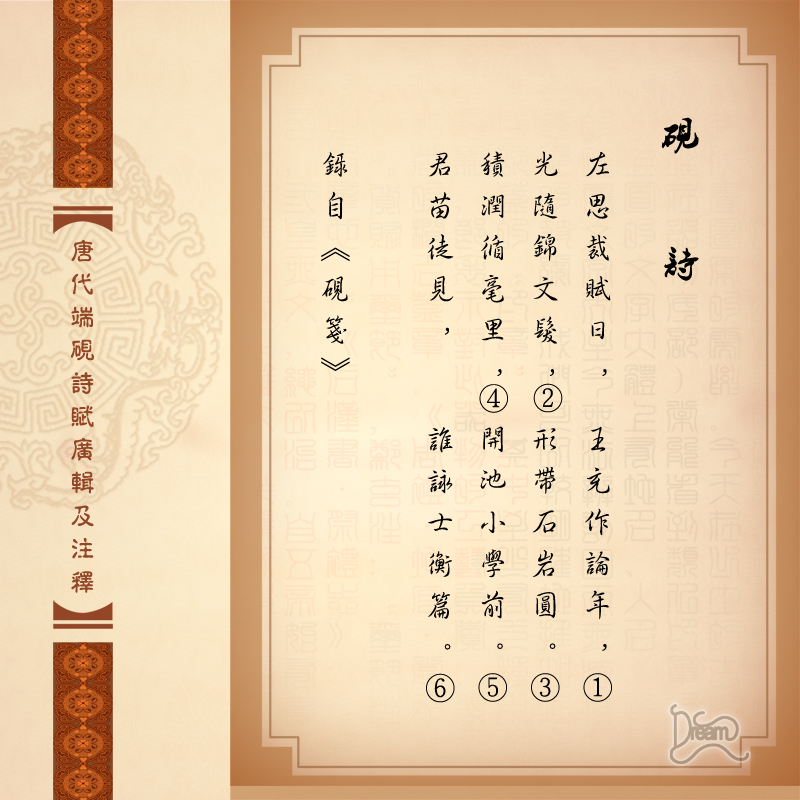 硯詩
左思裁賦日，王充作論年，①
光隨錦文髮，②形帶石岩圓。③
積潤循毫里，④開池小學前。⑤
君苗徒見，誰詠士衡篇。⑥
錄自《硯箋》
唐代端硯詩賦廣輯及注釋
Dream